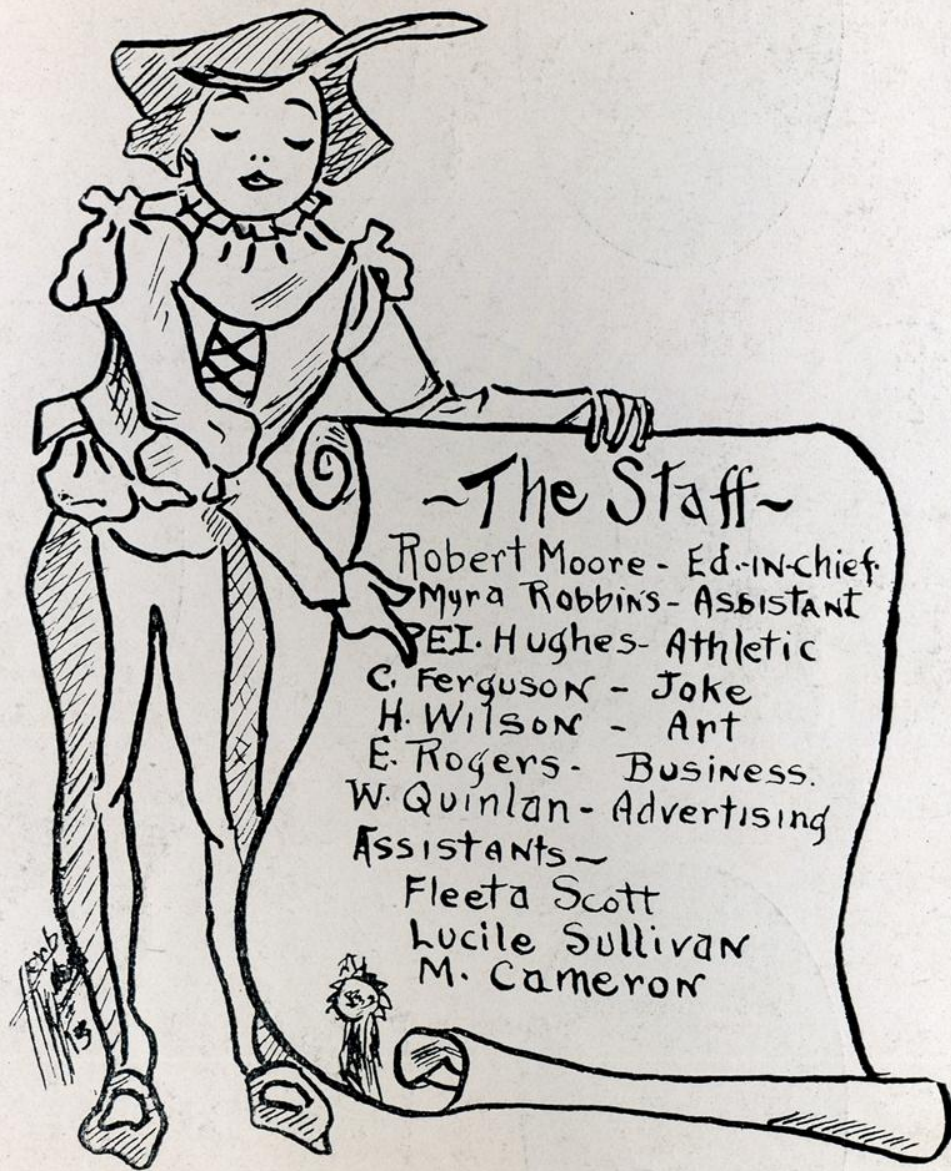 ~The Staff~
Robert Moore - Ed.-IN-chief.
Myra Robbins - Assistant
E.I. Hughes - Athletic
C. Ferguson - Joke
H. Wilson - Art
E. Rogers - Business.
W. Quinlan - Advertising
Assistants ~
Fleeta Scott
Lucile Sullivan
M. Cameron